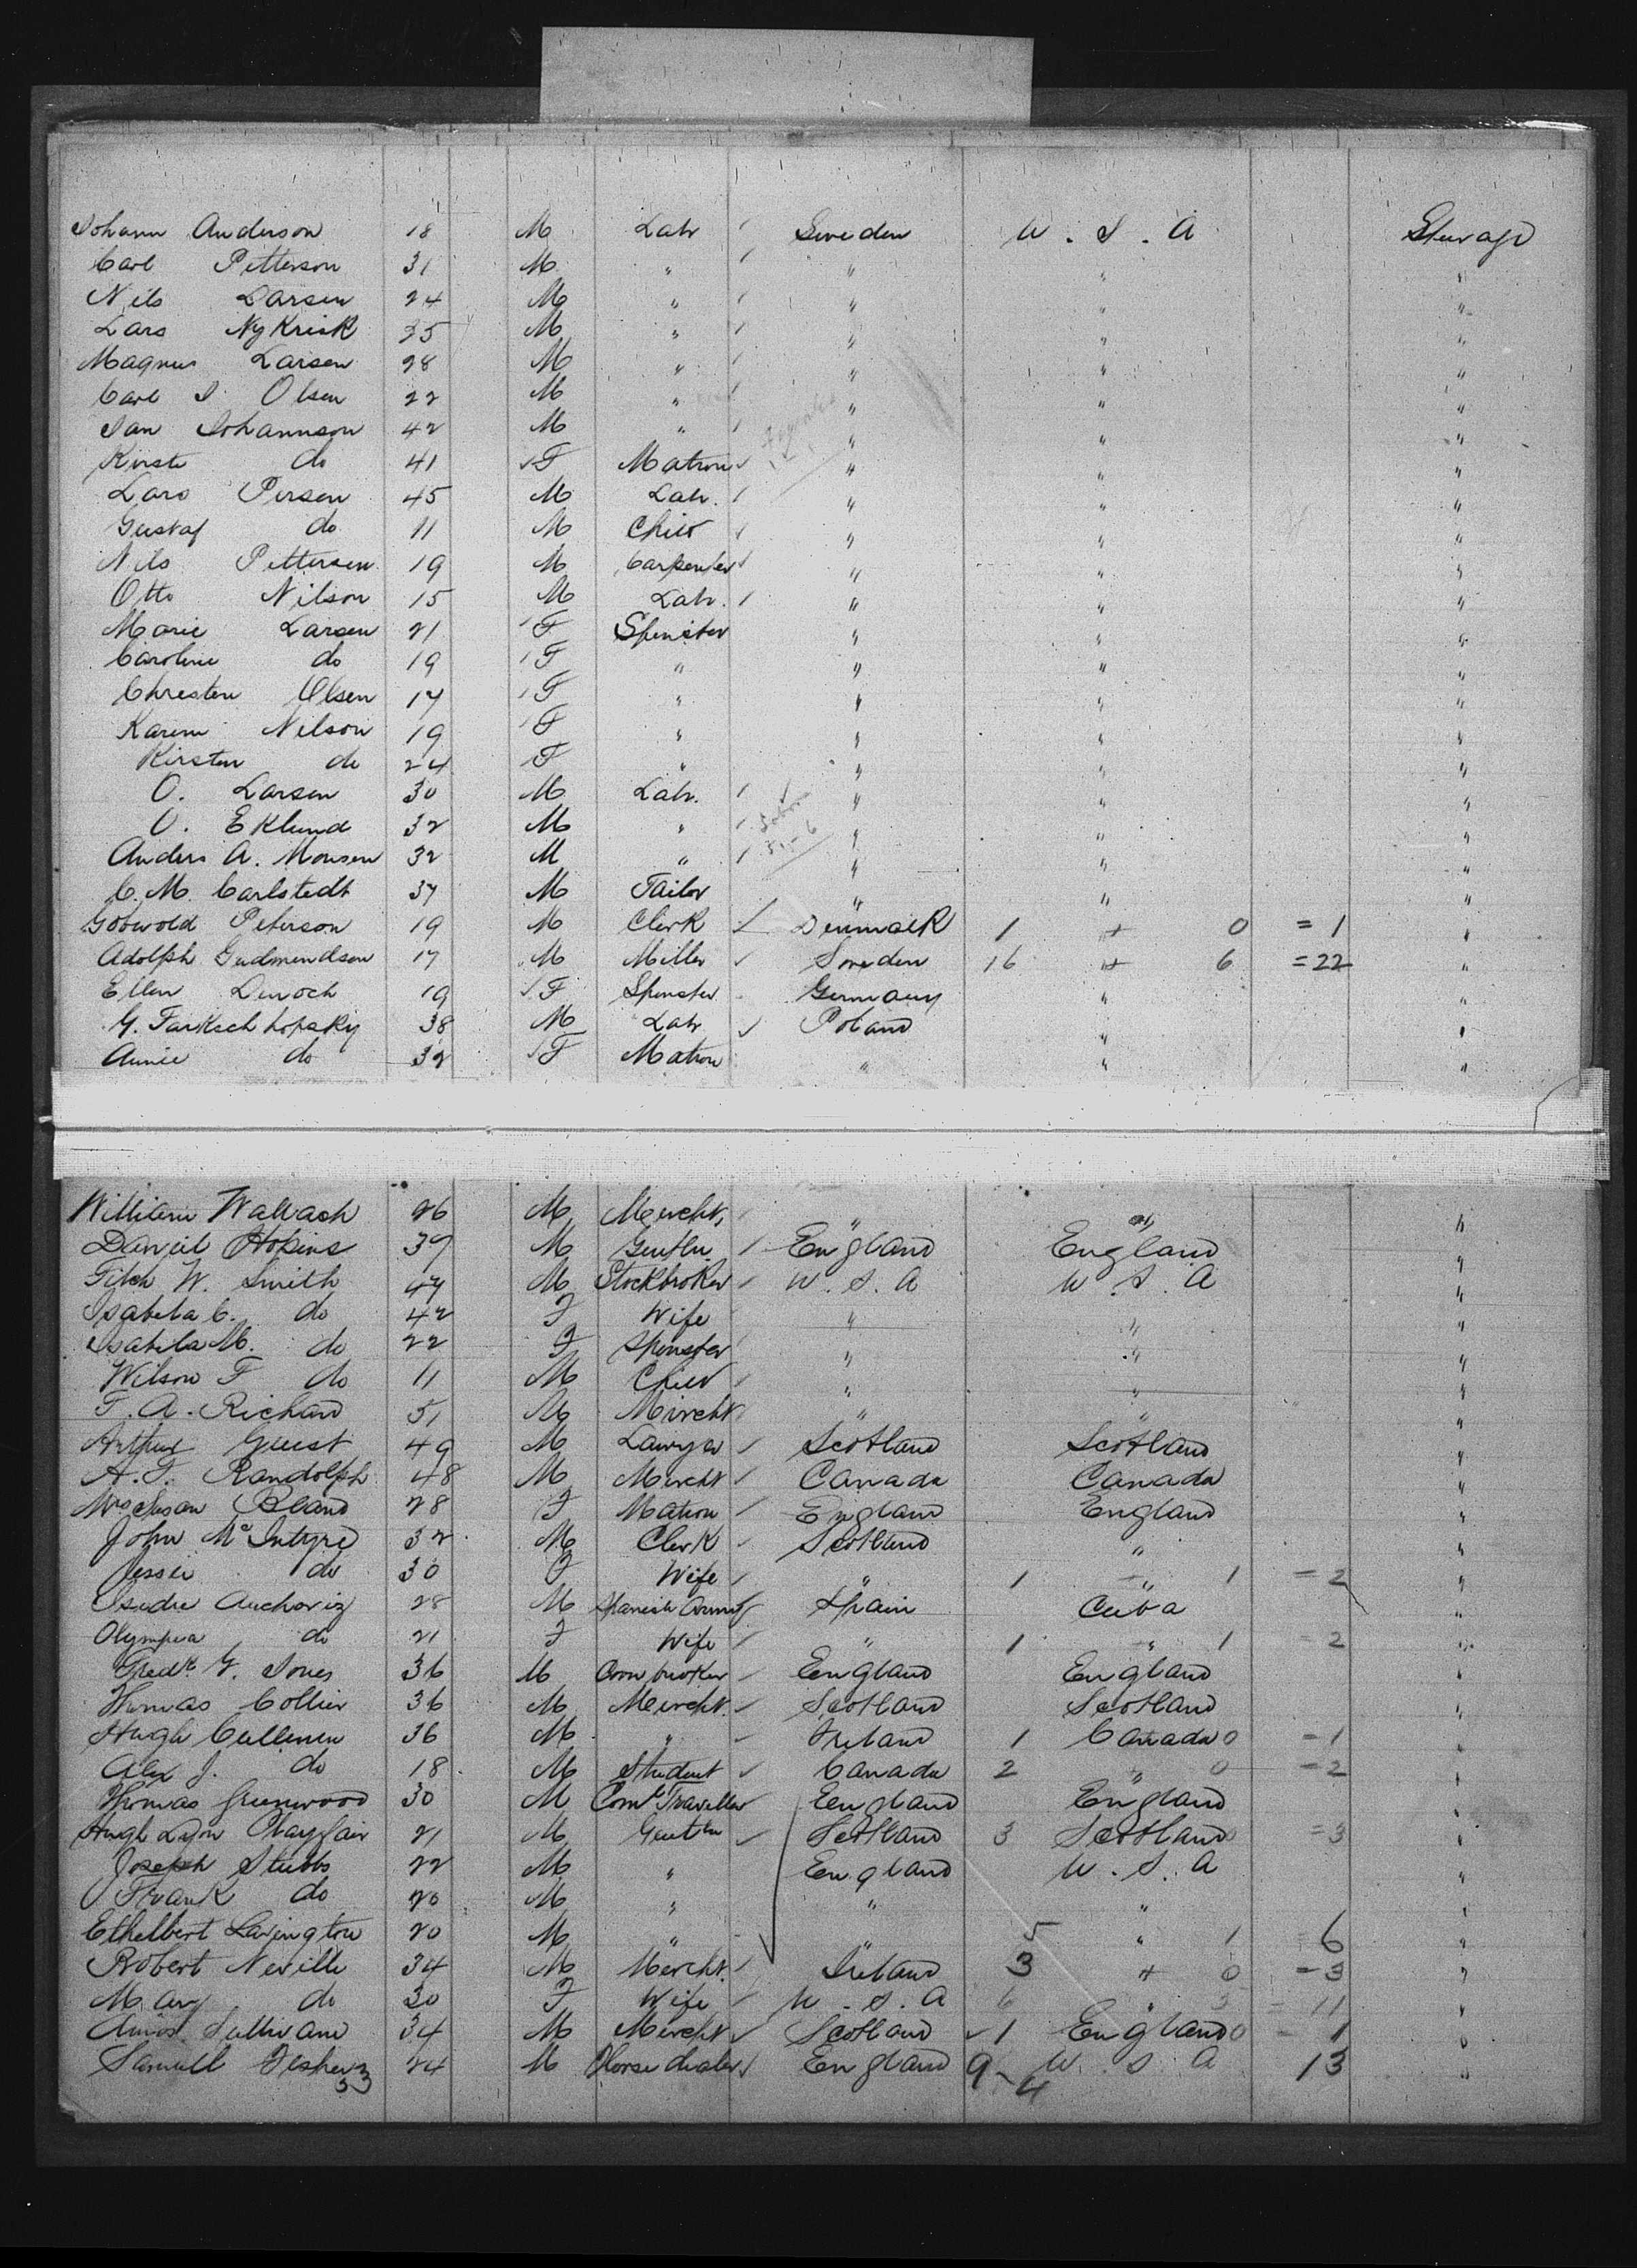 Johann Anderson 18 M Labr Sweden U. S. A Steerage
Carl Petterson 31 M " " " "
Nils Larsen 24 M " " " "
Lars NyKrisk 35 M " " " "
Magnus Larsen 28 M " " " "
Carl J Olsen 22 M " " " "
Jan Johannson 42 M " " " "
Kirste do 41 F Matron " " "
Lars Persen 45 M Labr. " " "
Gustaf do 11 M Child " " "
Nils Pettersen 19 M Carpenter " " "
Otto Nilson 15 M Labr. " " "
Marie Larsen 21 F Spinster " " "
Caroline do 19 F " " " "
Christen Olsen 17 F " " " "
Karin Nilson 19 F " " " "
Kirsten do 24 F " " " "
O. Larsen 30 M Labr. " " "
O. Eklund 32 M " " " "
Anders A. Monsen 32 M " " " "
C. M. Carlstedt 37 M Tailor " " "
Peterson 19 M Clerk Denmark 1 " 0 = 1 "
Adolph Gudmendson 17 M Miller Sweden 16 " 6 = 22 "
Ellen Devoch 19 F Spinster Germany " "
G. 38 M Labr Poland " "
Annie do 32 F Matron " " "
William Wallach 26 M Mercht. " " "
Daniel Hopins 39 M Gentln England England "
Fitch W. Smith 47 M Stockbroker U. S. A U. S. A "
Isabela C. do 42 F Wife " " "
Isabela M. do 22 F Spinster " " "
Wilson F do 11 M Child " " "
F. A. Richard 51 M Mercht " " "
Arthur Guest 49 M Lawyer Scotland Scotland "
A. F. Randolph 48 M Mercht Canada Canada "
Mrs Susan Bland 28 F Matron England England "
John McIntyre 32 M Clerk Scotland " "
Jessie do 30 F Wife " 1 " 1 = 2 "
Isidre Auchoriz 28 M Spanish Army Spain Cuba "
Olympia do 21 F Wife " 1 " 1 = 2 "
Fredk G. Jones 36 M England England "
Thomas Collier 36 M Mercht. Scotland Scotland "
Hugh Cullinen 36 M " Ireland 1 Canada 0 = 1 "
Alex J. do 18 M Student Canada 2 " 0 = 2 "
Thomas Greenwood 30 M Coml Traveller England England "
Hugh Lyon Playfair 21 M Gentln Scotland 3 Scotland 0 = 3 "
Joseph Stubbs 22 M " England U. S. A "
Frank do 20 M " " " "
Ethelbert Lavington 20 M " " 5 " 1 6 "
Robert Neville 34 M Mercht. Ireland 3 " 0 = 3 "
Mary do 30 F Wife U. S. A 6 " 5 = 11 "
Sullivan 34 M Mercht Scotland 1 England 0 = 1 "
Samuell Fisher 24 M Horse dealer England 9 - 4 U. S. A 13 "
53